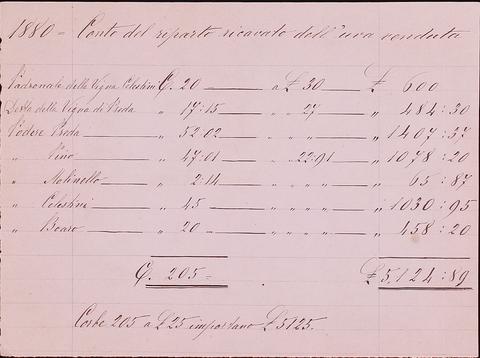 1880 = Conto del riparto ricavato dell'uva venduta
Padronale della Vigna Celestini C. 20 — a £ 30 — £ 600
Detta della Vigna di Preda „ 17:15 — „ „ 27 — „ 484:30
Podere Preda — „ 52:02 — „ „ „ — „ 1407:37
„ Pino — „ 47:01 — „ 22:91 — „ 1078:20
„ Molinello — „ 2:14 — „ „ „ — „ 65:87
„ Celestini — „ 45 — „ „ „ — „ 1030:95
„ Boaro — „ 20 — „ „ „ — „ 458:20
C. 205 = £ 5,124:89
Corbe 205 a £ 25 importano £ 5125.